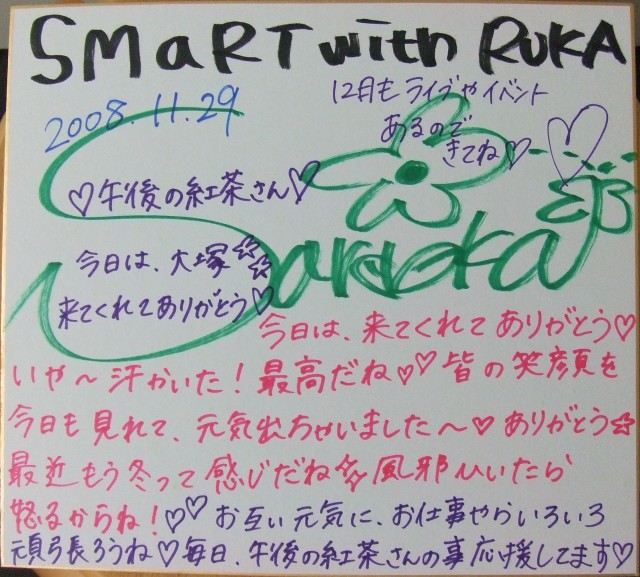 SMaRT with RUKA
12月もライブやイベント
あるので
きてね♡
2008.11.29
♡午後の紅茶さん♡
今日は、大塚☆☆
来てくれてありがとう♡
今日は、来てくれてありがとう♡
いや～汗かいた!最高だね♡♡皆の笑顔を
今日も見れて、元気出ちゃいました～♡ありがとう☆
最近もう冬って感じだね☆☆風邪ひいたら
怒るからね!♡♡お互い元気に、お仕事やらいろいろ
頑張ろうね♡毎日、午後の紅茶さんの事応援してます♡